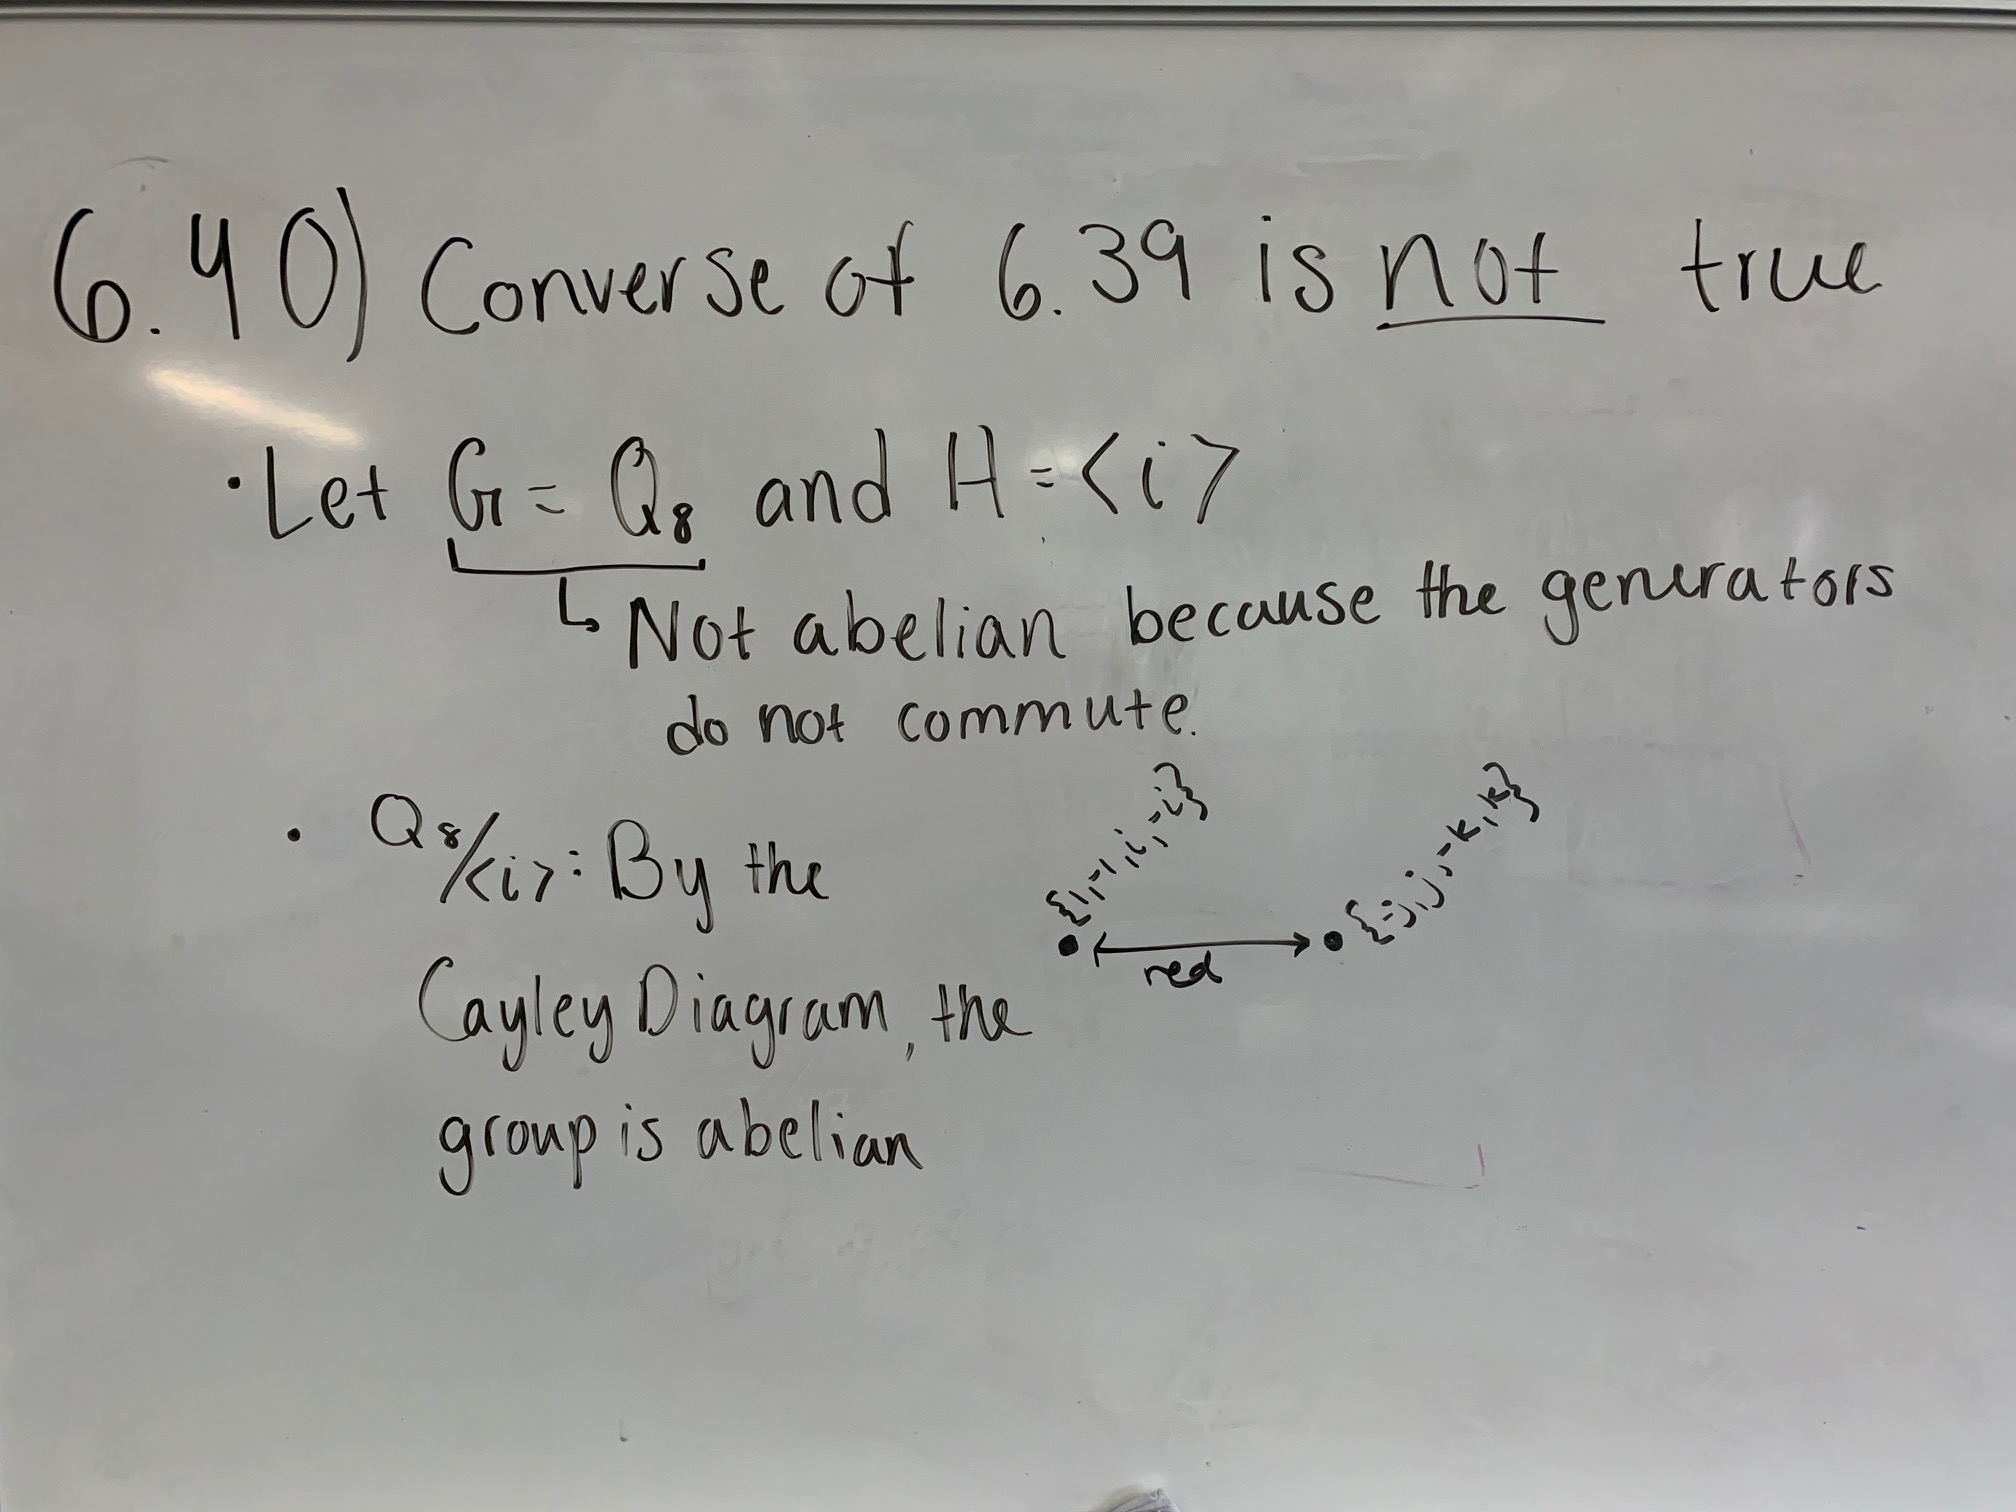 6.40) Converse of 6.39 is not true
· Let G = Q8 and H = <i>
↳ Not abelian because the generators
do not commute.
· Q8/<i>: By the
Cayley Diagram, the
group is abelian
{1,-1,i,-i}
{-j,j,-k,k}
red